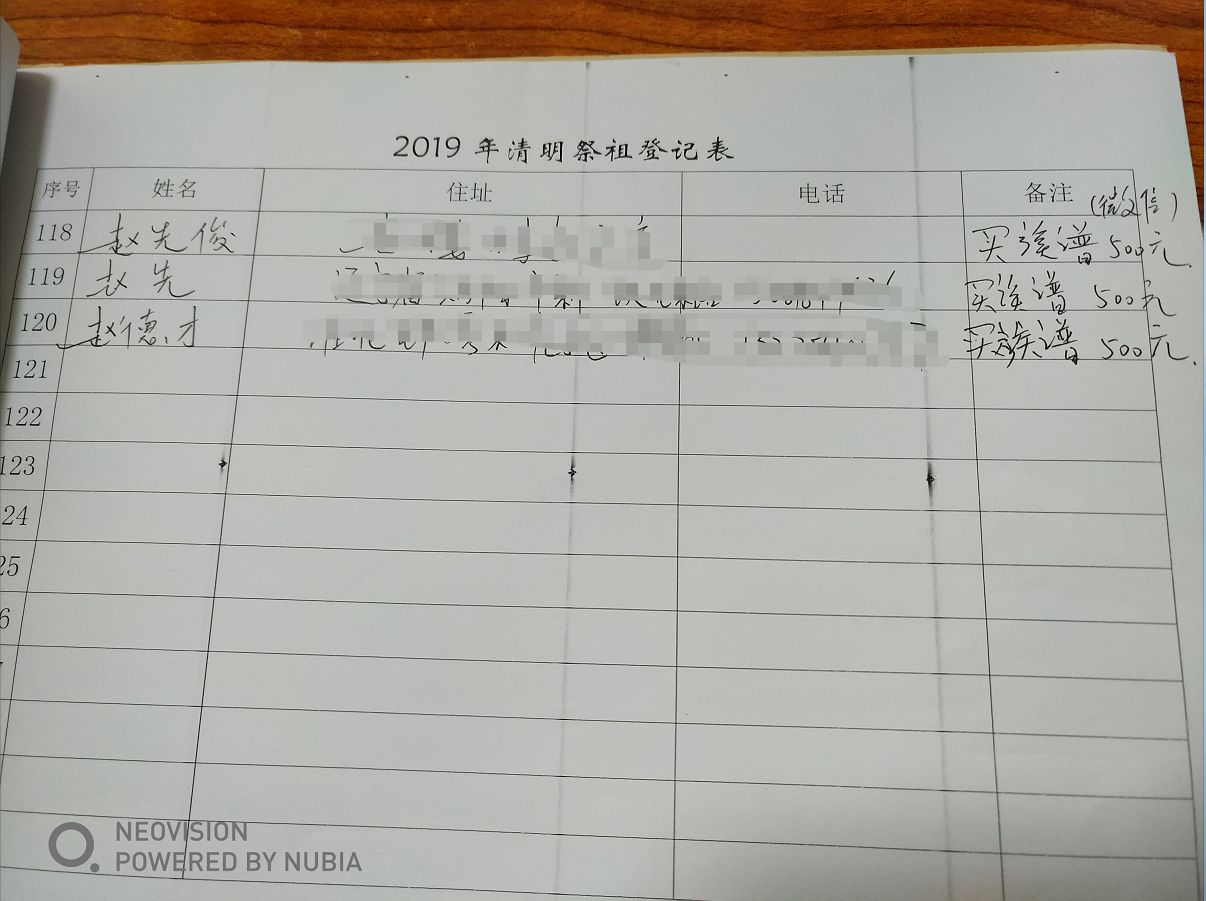 2019 年清明祭祖登记表
序号 姓名 住址 电话 备注 (微信)
118 赵先俊 买族谱 500元.
119 赵先 买族谱 500元
120 赵德才 买族谱 500元.
121
122
123
24
25
6
NEOVISION
POWERED BY NUBIA